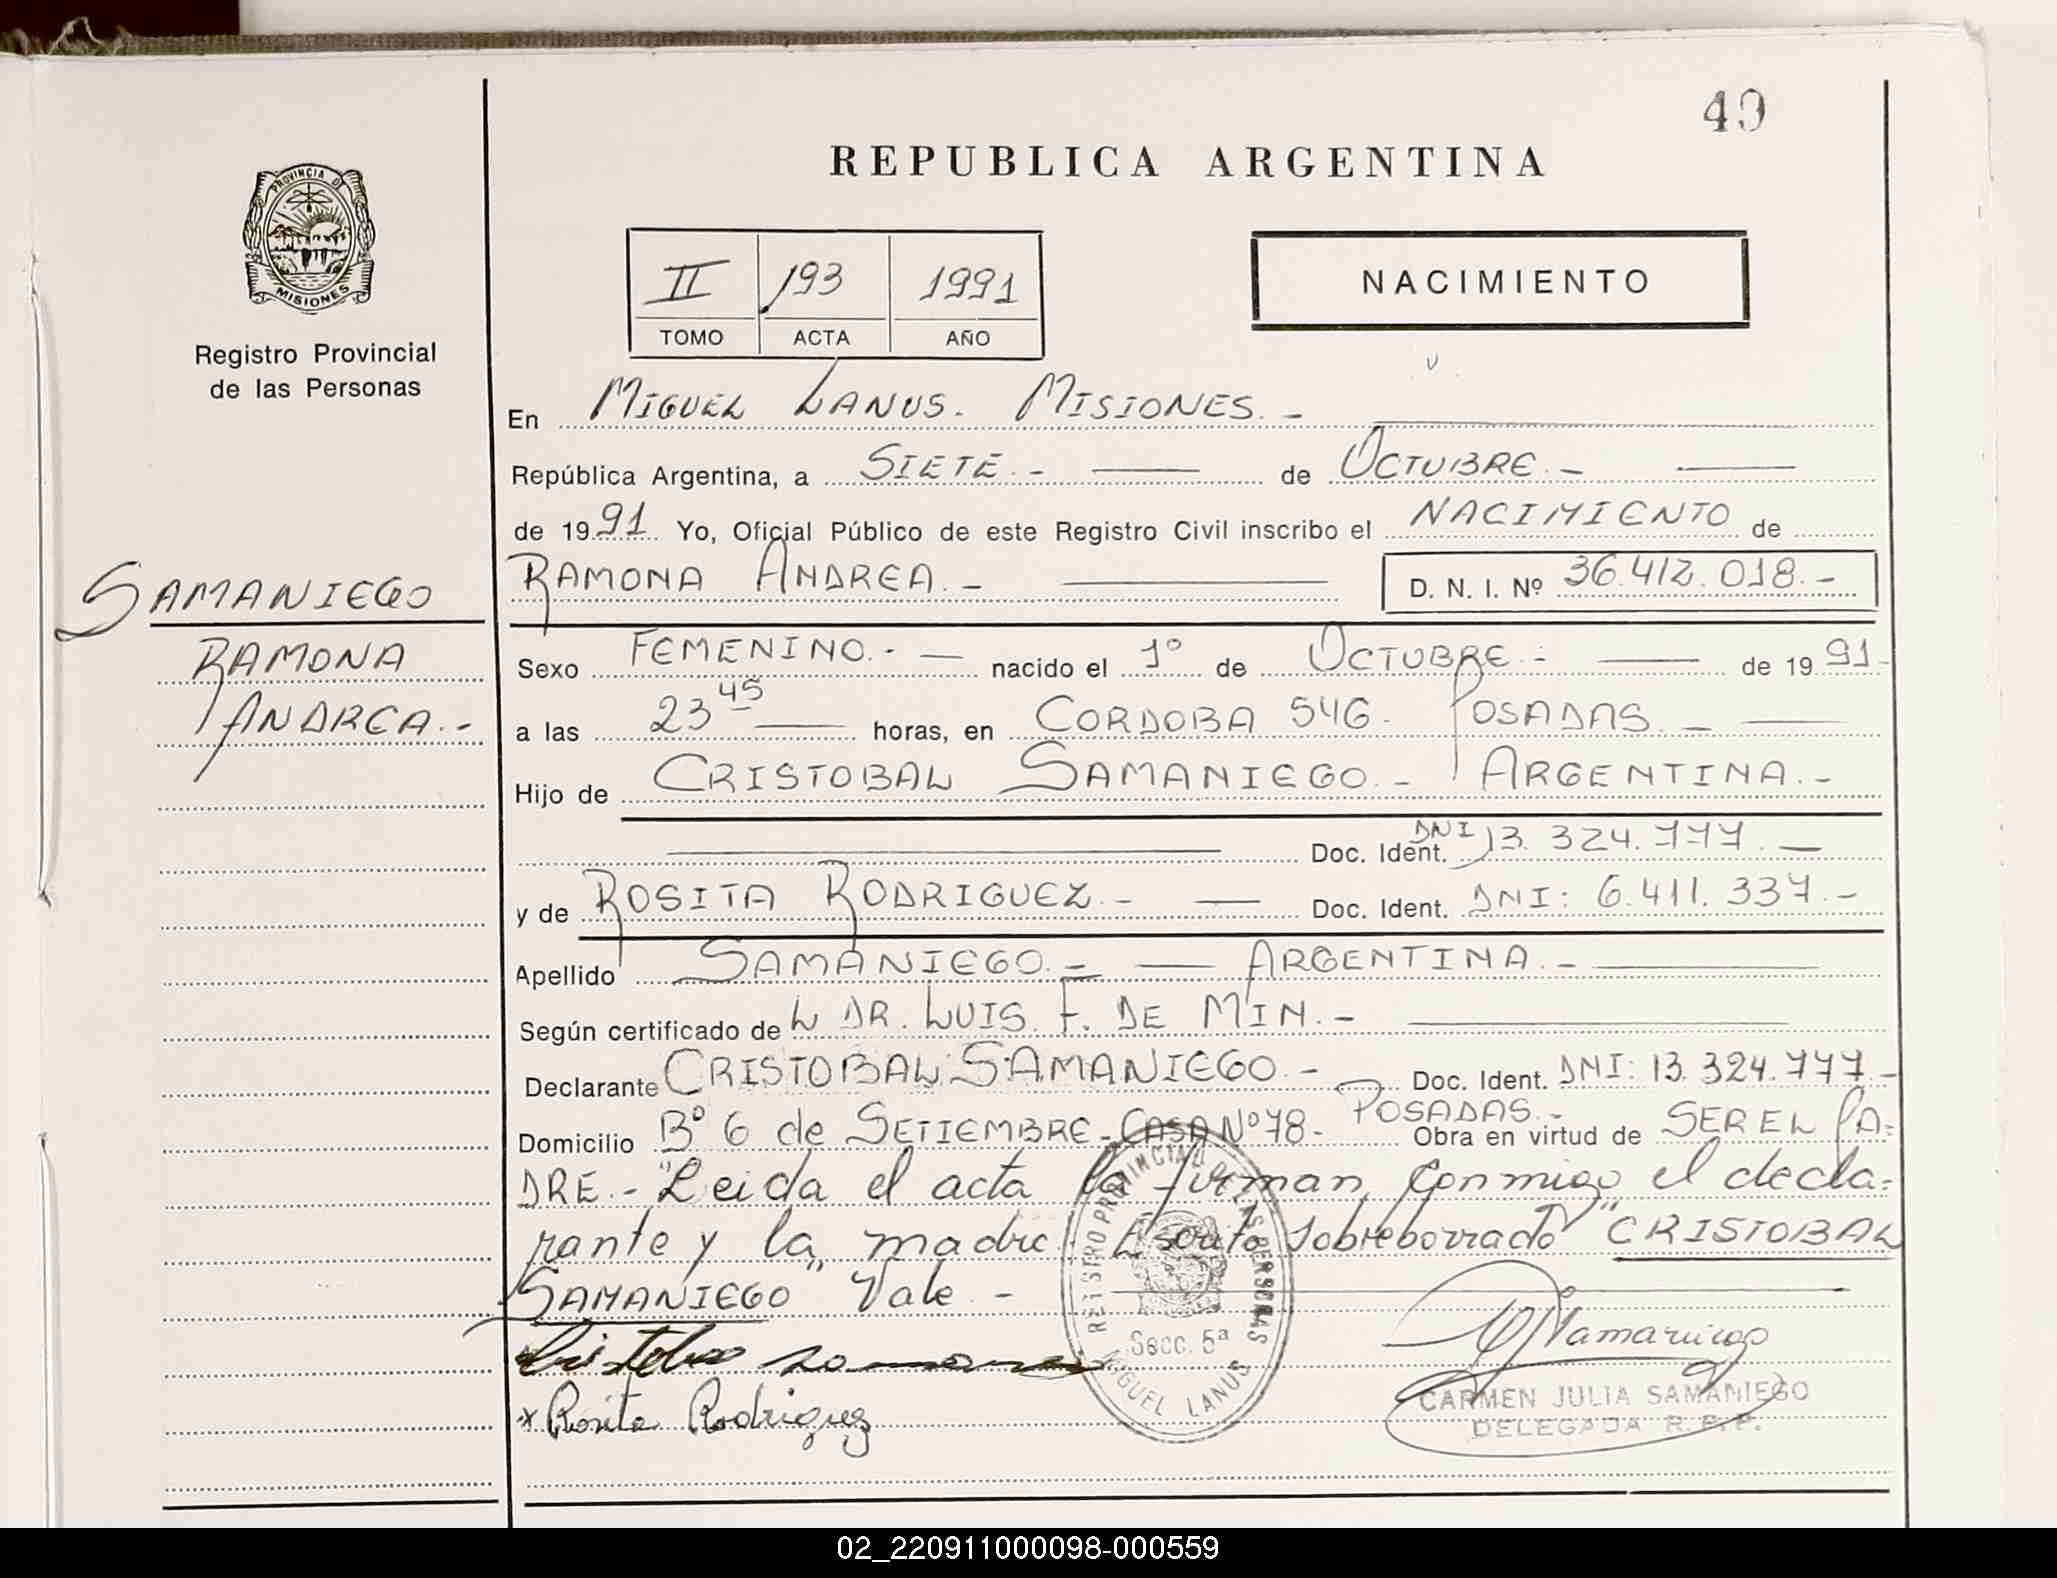 49
REPUBLICA ARGENTINA
PROVINCIA DE
MISIONES
Registro Provincial
de las Personas
II 193 1991
TOMO ACTA AÑO
NACIMIENTO
En MIGUEL LANUS. MISIONES. -
República Argentina, a SIETE. - de OCTUBRE. -
de 1991 Yo, Oficial Público de este Registro Civil inscribo el NACIMIENTO de
RAMONA ANDREA. - D. N. I. Nº 36.412.018. -
SAMANIEGO
RAMONA
ANDREA. -
Sexo FEMENINO. - nacido el 1º de OCTUBRE. - de 1991-
a las 23 45 horas, en CORDOBA 546. POSADAS. -
Hijo de CRISTOBAL SAMANIEGO. - ARGENTINA. -
Doc. Ident. DNI 13.324.777. -
y de ROSITA RODRIGUEZ. - Doc. Ident. DNI: 6.411.337. -
Apellido SAMANIEGO. - ARGENTINA. -
Según certificado de L DR. LUIS F. DE MIN. -
Declarante CRISTOBAL SAMANIEGO. - Doc. Ident. DNI: 13.324.777-
Domicilio Bº 6 de SETIEMBRE - CASA Nº 78 - POSADAS. - Obra en virtud de SER EL PA-
DRE. - "Leida el acta la firman conmigo el decla-
rante y la madre. Escrito sobreborrado "CRISTOBAL
SAMANIEGO" Vale. -
Cristobal Samaniego
x Rosita Rodriguez
REGISTRO PROVINCIAL DE LAS PERSONAS
Secc. 5ª
MIGUEL LANUS
CJSamaniego
CARMEN JULIA SAMANIEGO
DELEGADA R.P.P.
02_220911000098-000559